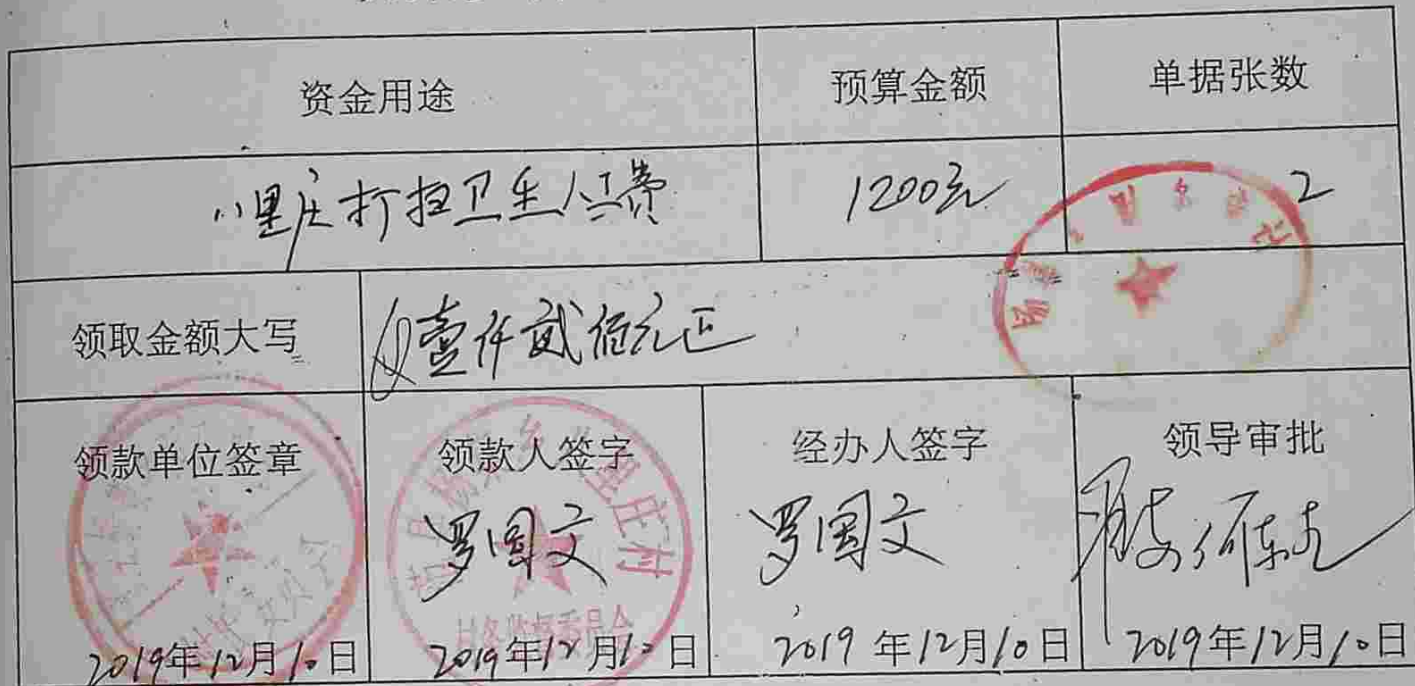 资金用途 预算金额 单据张数
八里庄打扫卫生人工费 1200元 2
领取金额大写 壹仟贰佰元正
领款单位签章 领款人签字 经办人签字 领导审批
罗国文 罗国文
里庄村
村务监督委员会
2019年12月10日 2019年12月10日 2019年12月10日 2019年12月10日